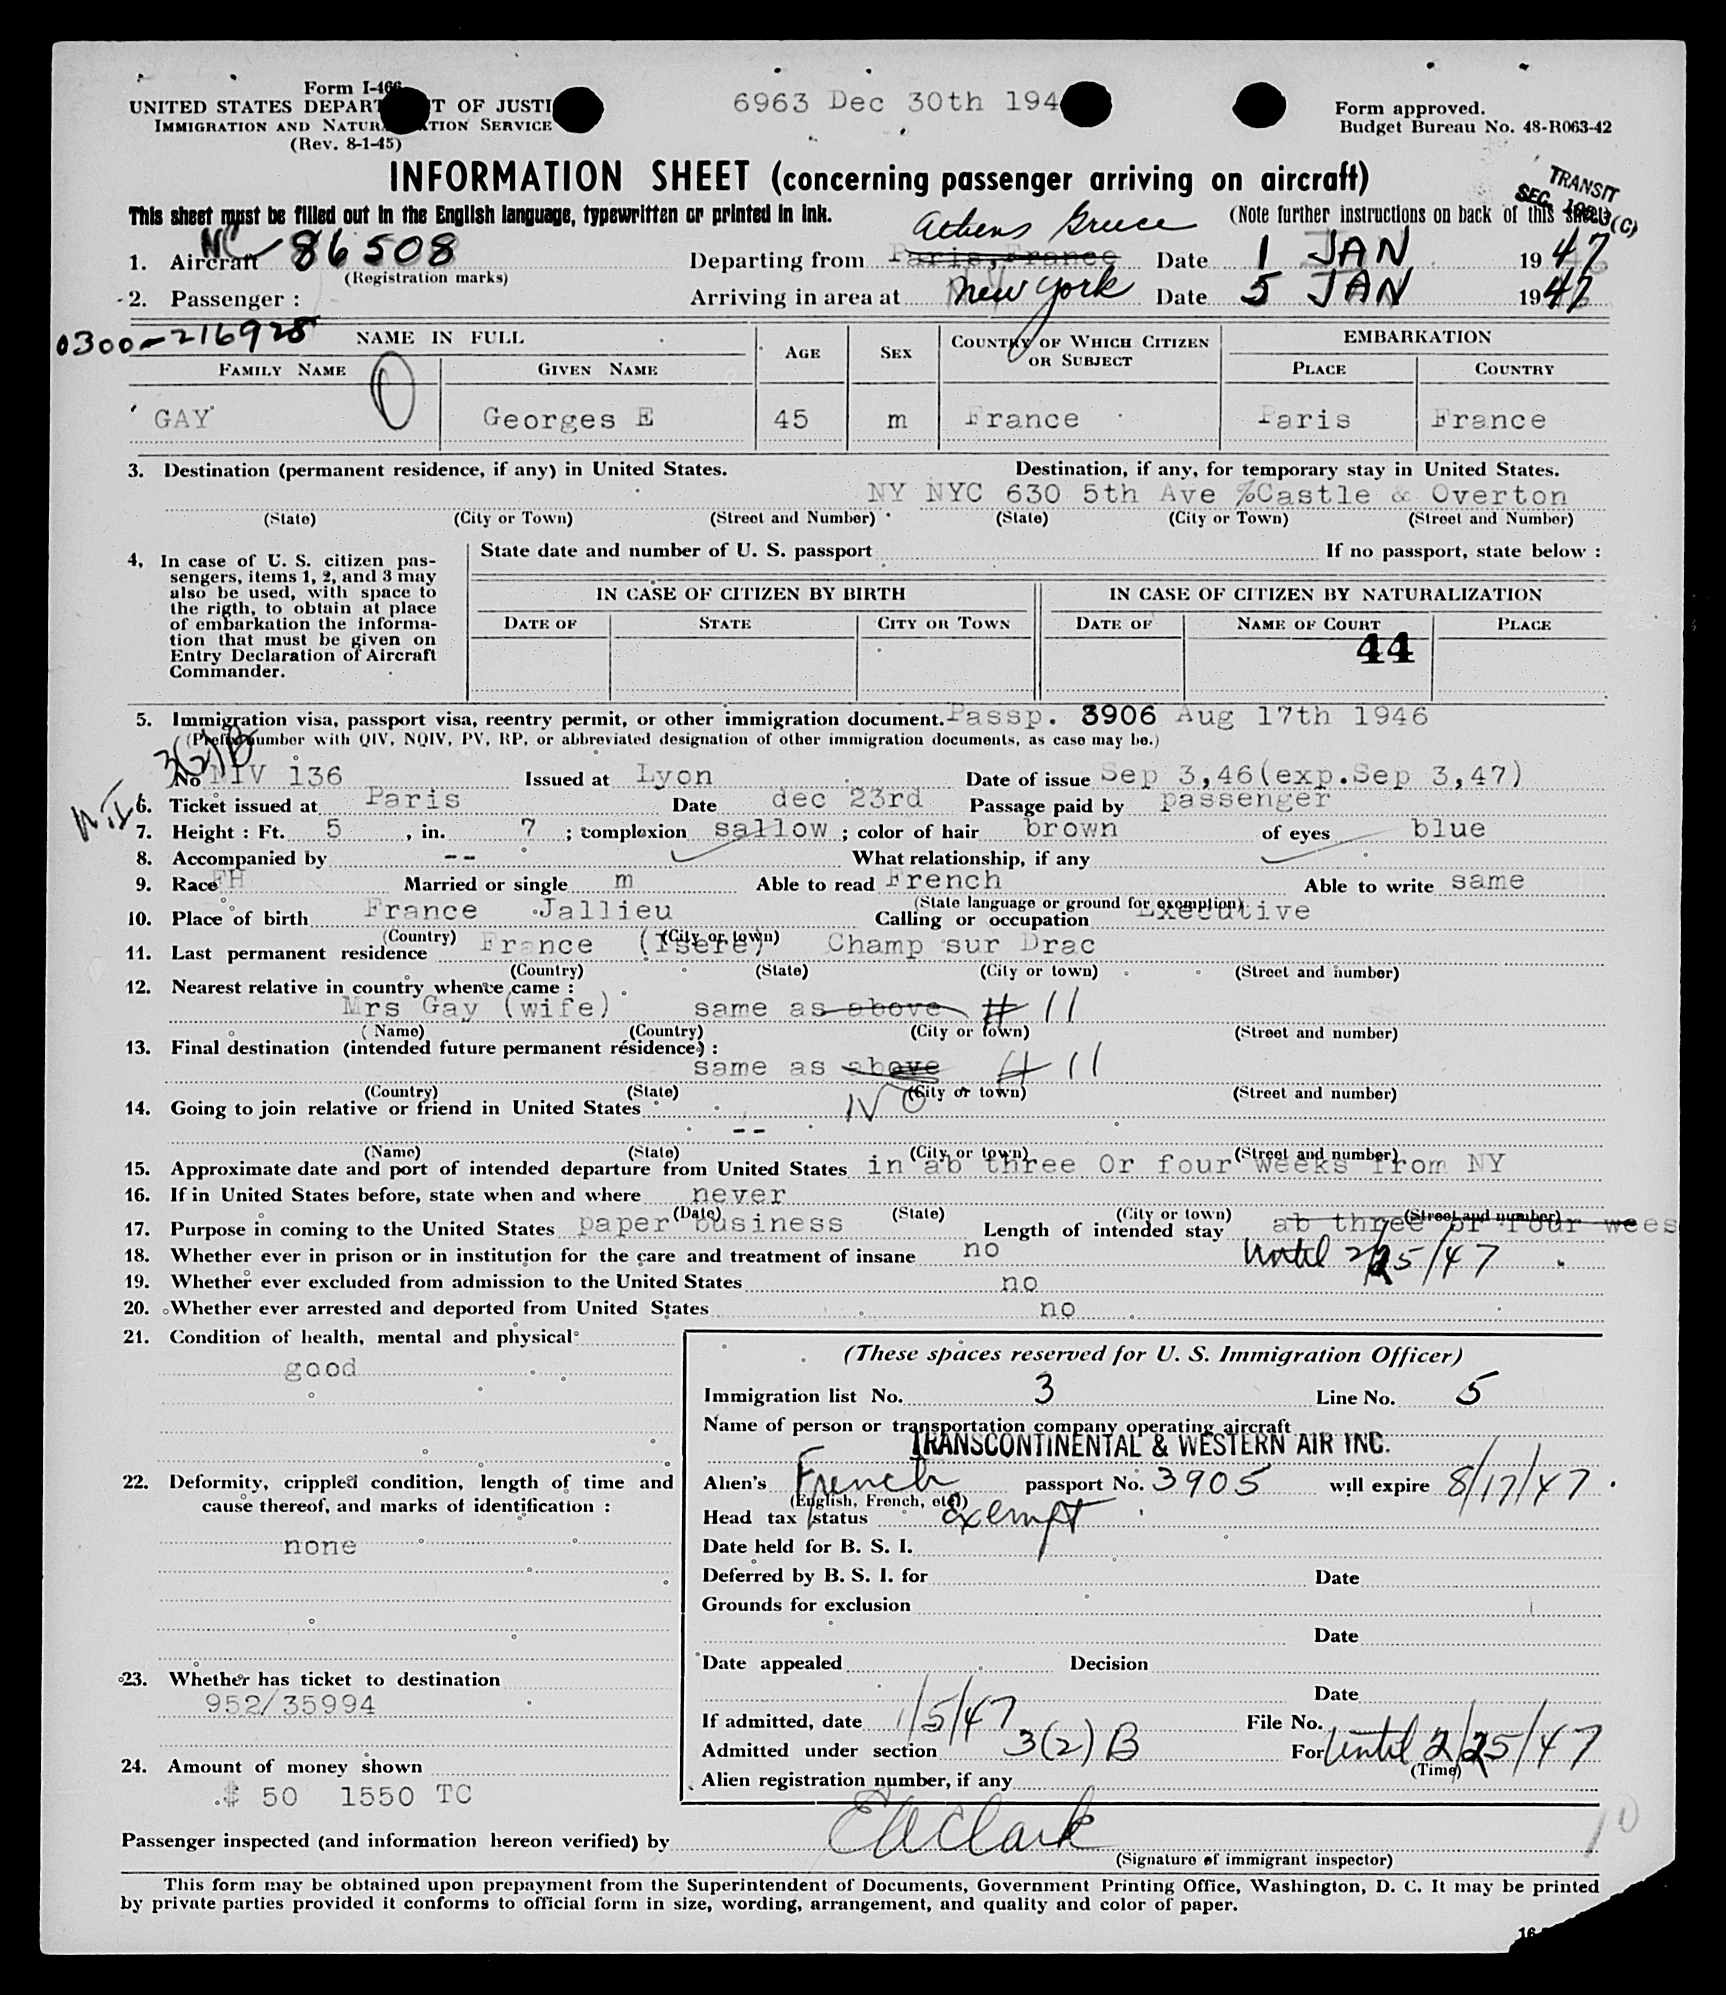 Form I-466
UNITED STATES DEPART T OF JUSTI
IMMIGRATION AND NATUR TION SERVICE
(Rev. 8-1-45)
6963 Dec 30th 194
Form approved.
Budget Bureau No. 48-R063-42
INFORMATION SHEET (concerning passenger arriving on aircraft)
TRANSIT
SEC.
This sheet must be filled out in the English language, typewritten or printed in ink.
(Note further instructions on back of this sheet)
1. Aircraft NC 86508 Departing from Paris, France Athens Greece Date 1 JAN 1947
(Registration marks)
2. Passenger : Arriving in area at New York Date 5 JAN 1947
0300-216928
NAME IN FULL AGE SEX COUNTRY OF WHICH CITIZEN OR SUBJECT EMBARKATION
FAMILY NAME GIVEN NAME PLACE COUNTRY
GAY Georges E 45 m France Paris France
3. Destination (permanent residence, if any) in United States. Destination, if any, for temporary stay in United States.
NY NYC 630 5th Ave %Castle & Overton
(State) (City or Town) (Street and Number) (State) (City or Town) (Street and Number)
4, In case of U. S. citizen pas-
sengers, items 1, 2, and 3 may
also be used, with space to
the rigth, to obtain at place
of embarkation the informa-
tion that must be given on
Entry Declaration of Aircraft
Commander.
State date and number of U. S. passport If no passport, state below :
IN CASE OF CITIZEN BY BIRTH IN CASE OF CITIZEN BY NATURALIZATION
DATE OF STATE CITY OR TOWN DATE OF NAME OF COURT PLACE
44
5. Immigration visa, passport visa, reentry permit, or other immigration document. Passp. 3906 Aug 17th 1946
(Prefix number with QIV, NQIV, PV, RP, or abbreviated designation of other immigration documents, as case may be.)
3(2)B
No NIV 136 Issued at Lyon Date of issue Sep 3,46(exp.Sep 3,47)
6. Ticket issued at Paris Date dec 23rd Passage paid by passenger
7. Height : Ft. 5 , in. 7 ; complexion sallow ; color of hair brown of eyes blue
8. Accompanied by -- What relationship, if any
9. Race FH Married or single m Able to read French Able to write same
(State language or ground for exemption)
10. Place of birth France Jallieu Calling or occupation Executive
(Country) (City or town)
11. Last permanent residence France (Isere) Champ sur Drac
(Country) (State) (City or town) (Street and number)
12. Nearest relative in country whence came :
Mrs Gay (wife) same as above # 11
( Name) (Country) (City or town) (Street and number)
13. Final destination (intended future permanent résidence) :
same as above # 11
(Country) (State) (City or town) (Street and number)
14. Going to join relative or friend in United States No
--
(Name) (State) (City or town) (Street and number)
15. Approximate date and port of intended departure from United States in ab three Or four weeks from NY
16. If in United States before, state when and where never
(Date) (State) (City or town) (Street and number)
17. Purpose in coming to the United States paper business Length of intended stay ab three or four wees
18. Whether ever in prison or in institution for the care and treatment of insane no Until 2/25/47
19. Whether ever excluded from admission to the United States no
20. Whether ever arrested and deported from United States no
21. Condition of health, mental and physical
good
22. Deformity, crippled condition, length of time and
cause thereof, and marks of identification :
none
23. Whether has ticket to destination
952/35994
24. Amount of money shown
$ 50 1550 TC
(These spaces reserved for U. S. Immigration Officer)
Immigration list No. 3 Line No. 5
Name of person or transportation company operating aircraft
TRANSCONTINENTAL & WESTERN AIR INC.
Alien's French passport No. 3905 will expire 8/17/47
(English, French, etc.)
Head tax status Exempt
Date held for B. S. I.
Deferred by B. S. I. for Date
Grounds for exclusion
Date
Date appealed Decision
Date
If admitted, date 1/5/47 File No.
Admitted under section 3(2)B For Until 2/25/47
(Time)
Alien registration number, if any
Passenger inspected (and information hereon verified) by E A Clark
(Signature of immigrant inspector)
This form may be obtained upon prepayment from the Superintendent of Documents, Government Printing Office, Washington, D. C. It may be printed
by private parties provided it conforms to official form in size, wording, arrangement, and quality and color of paper.